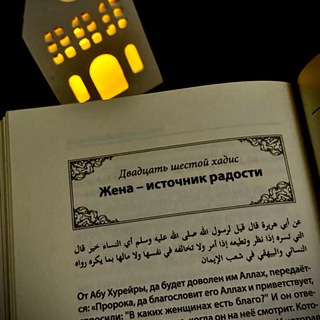 Двадцать шестой хадис
Жена – источник радости
عن أبي هريرة قال قيل لرسول الله صلى الله عليه وسلم أي النساء خير قال
التي تسره إذا نظر وتطيعه إذا أمر ولا تخالفه في نفسها ولا مالها بما يكره رواه
النسائي والبيهقي في شعب الإيمان
От Абу Хурейры, да будет доволен им Аллах, передаёт-
ся: «Пророка, да благословит его Аллах и приветствует,
спросили: "В каких женщинах есть благо?" И он отве-
когда он на неё смотрит. Кото-